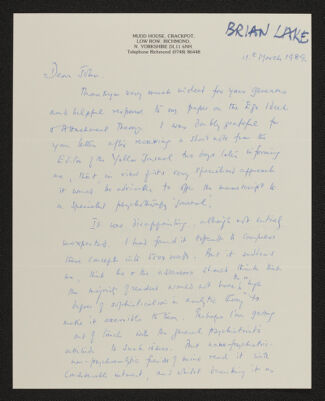 MUDD HOUSE, CRACKPOT,
LOW ROW, RICHMOND,
N. YORKSHIRE DL11 6NH
Telephone Richmond (0748) 86448
BRIAN LAKE
11th March 1989.
Dear John,
Thank you very much indeed for your generous
and helpful response to my paper on the Ego Ideal
& Attachment Theory. I was doubly grateful for
your letter after receiving a short note from the
Editor of the Yellow Journal two days later, informing
me, that in view of its very specialised approach
it would be advisable to offer the manuscript to
a specialist psychotherapy journal!
It was disappointing, although not entirely
unexpected. I had found it difficult to compress
these concepts into 5000 words. But it saddens
me, that he & the assessors should think that
the majority of readers would not have "the high
degree of sophistication in analytic theory" to
make it accessible to them. Perhaps I'm getting
out of touch with the general psychiatrist's
attitude to such ideas. But non-psychiatric
non-psychoanalytic friends of mine read it with
considerable interest, and whilst branding it as